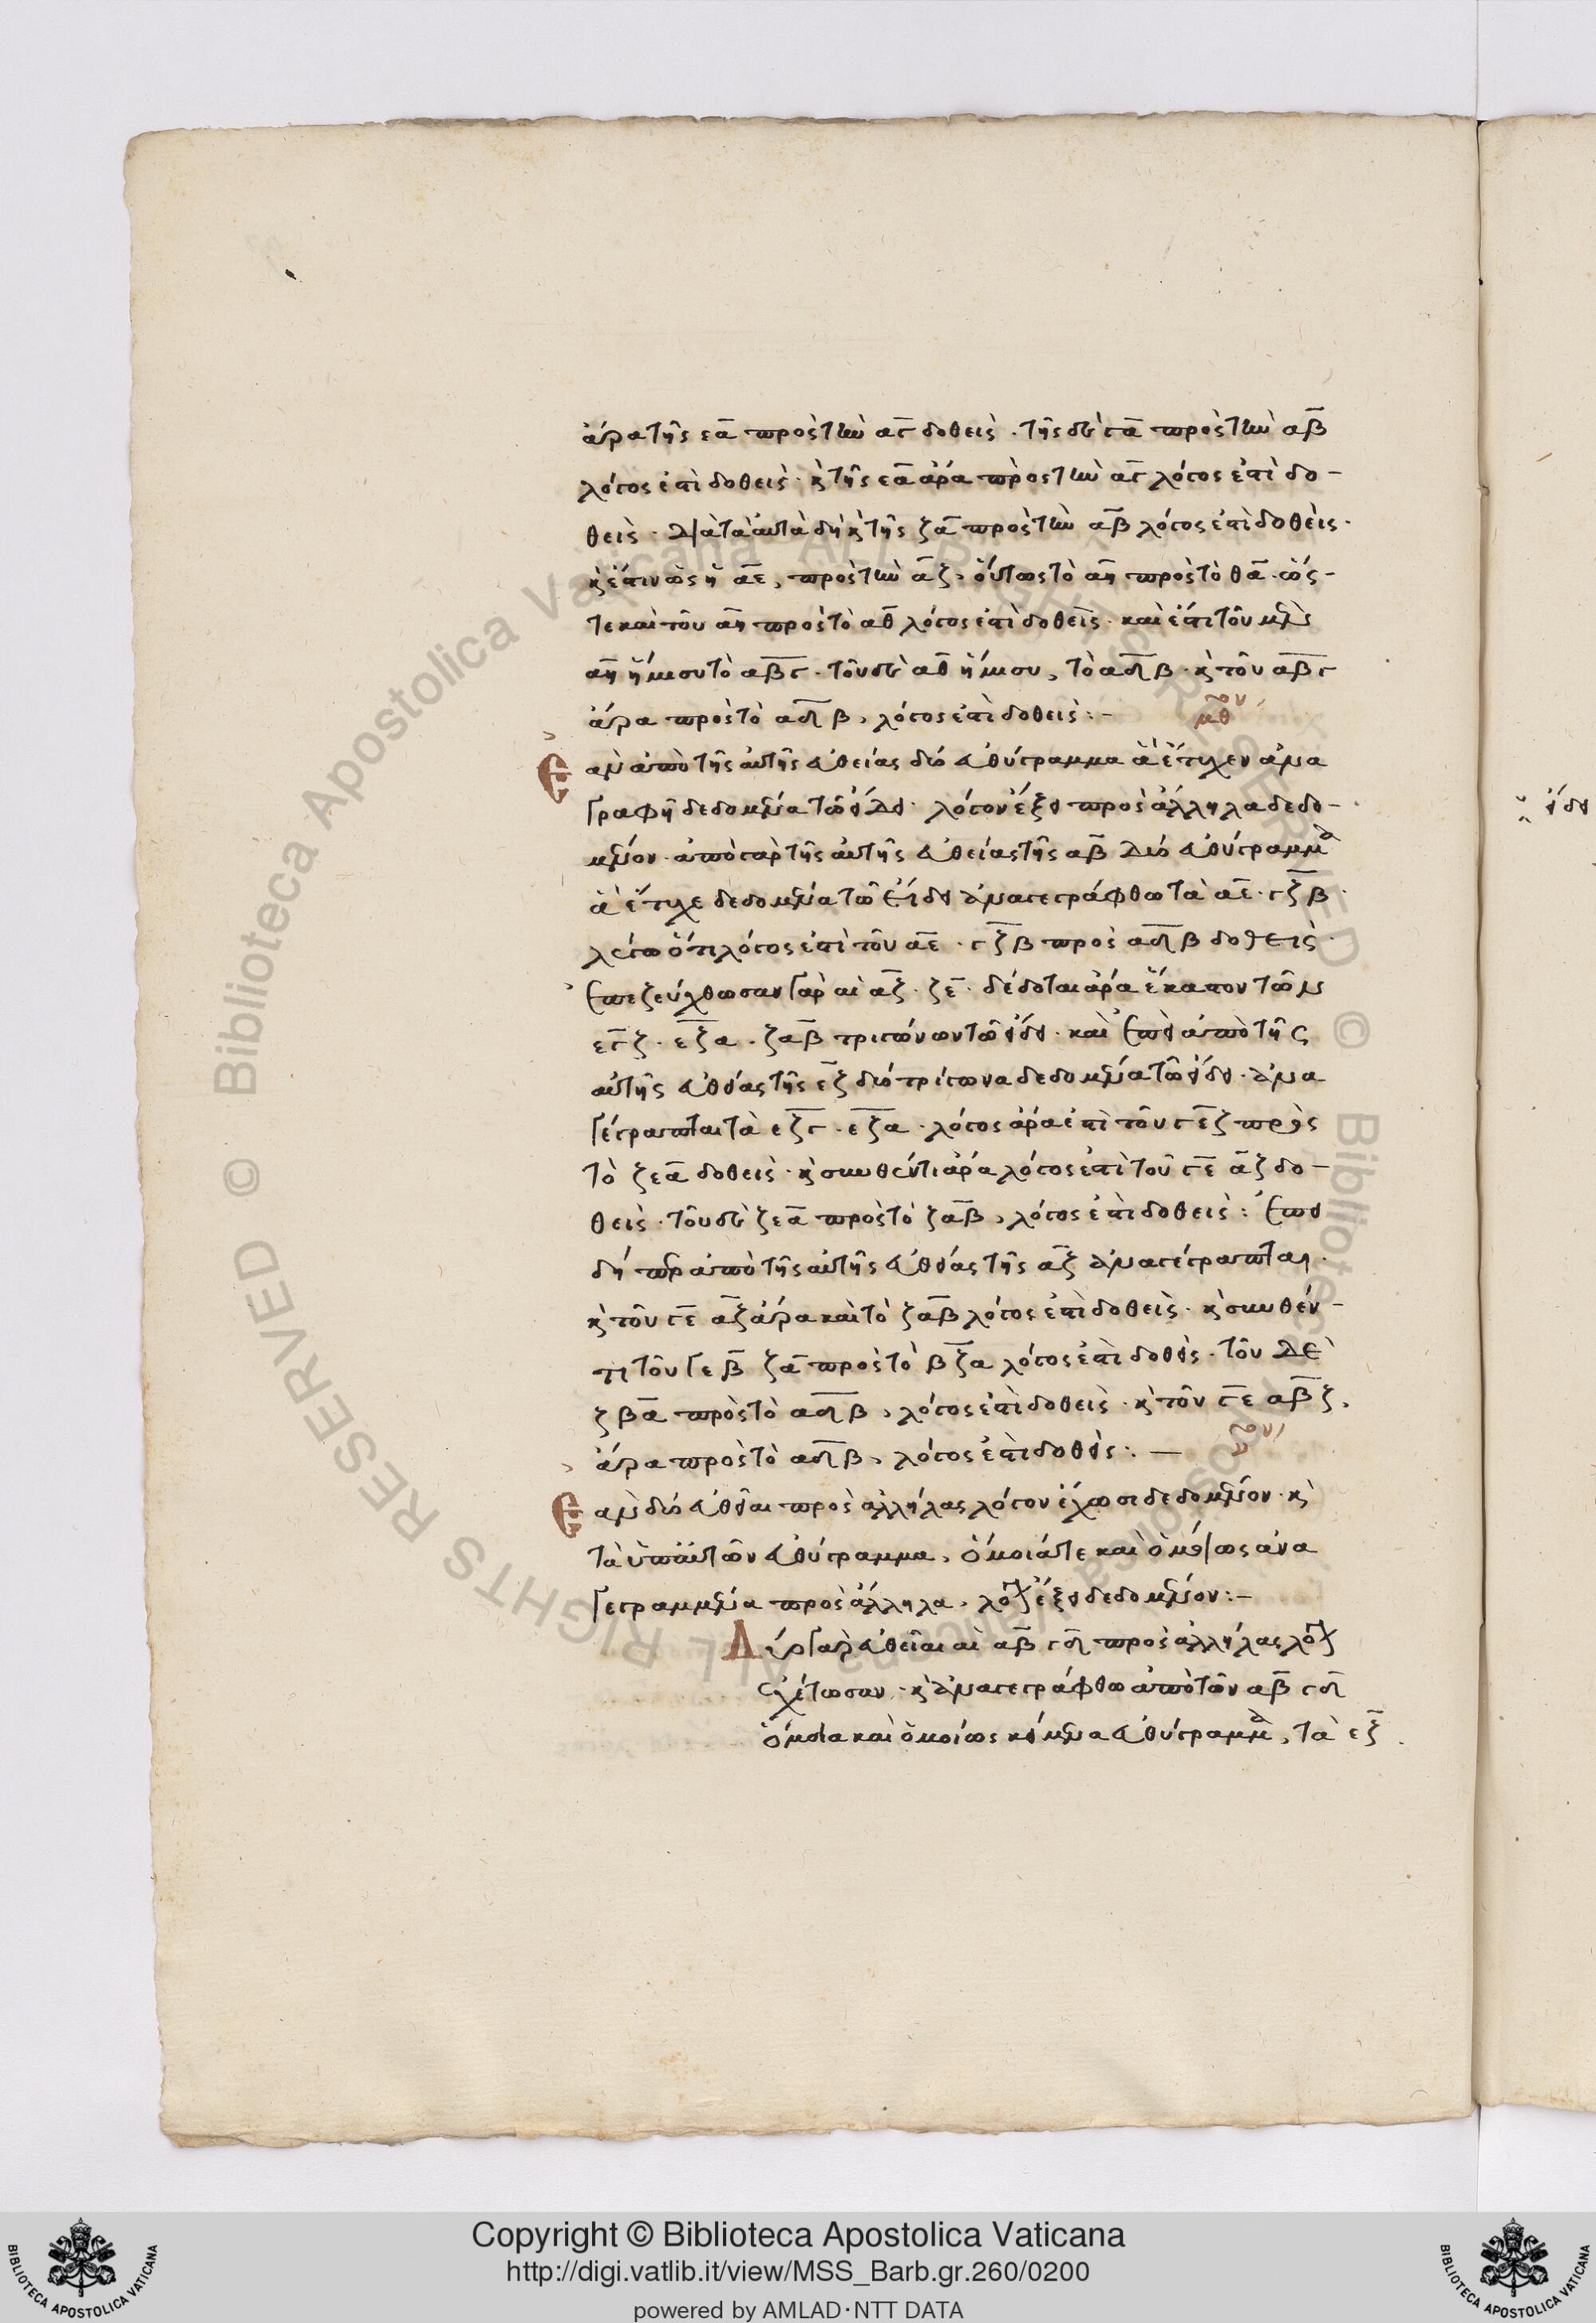 ἄρα τῆς εα πρὸς τὴν αγ δοθείς · τῆς δὲ γα πρὸς τὴν αβ
λόγος ἐστὶ δοθείς · κ τῆς εα ἄρα πρὸς τὴν αγ λόγος ἐστὶ δο-
θείς · διὰ τὰ αὐτὰ δὴ κ τῆς ζα πρὸς τὴν αβ λόγος ἐστὶ δοθείς ·
κ ἔστιν ὡς ἡ αε, πρὸς τὴν αζ, οὕτως τὸ αη πρὸς τὸ θα · ὥς-
τε καὶ τοῦ αη πρὸς τὸ αθ λόγος ἐστὶ δοθείς · καὶ ἔστι τοῦ μὲν
αη ἥμισυ τὸ αβγ · τοῦ δὲ αθ ἥμισυ, τὸ αδβ · κ τοῦ αβγ
ἄρα πρὸς τὸ αδβ, λόγος ἐστὶ δοθείς :-
μθον
Ἐὰν ἀπὸ τῆς αὐτῆς εὐθείας δύο εὐθύγραμμα ἃ ἔτυχεν ἀνα
γραφῆ δεδομένα τῷ εἴδει · λόγον ἕξει πρὸς ἄλληλα δεδο-
μένον · ἀπὸ γὰρ τῆς αὐτῆς εὐθείας τῆς αβ δύο εὐθύγραμμα
ἃ ἔτυχε δεδομένα τῷ εἴδει ἀναγεγράφθω τὰ αε · γζβ ·
λέγω ὅτι λόγος ἐστὶ τοῦ αε · γζβ πρὸς αδβ δοθείς ·
ἐπεζεύχθωσαν γὰρ αἱ αζ · ζε · δέδοται ἄρα ἕκαστον τῶν
εγζ · εζα · ζαβ τριγώνων τῷ εἴδει · καὶ ἐπεὶ ἀπὸ τῆς
αὐτῆς εὐθείας τῆς εζ δύο τρίγωνα δεδομένα τῷ εἴδει · ἀνα
γέγραπται τὰ εζγ · εζα · λόγος ἄρα ἐστὶ τοῦ γεζ πρὸς
τὸ ζεα δοθείς · κ συνθέντι ἄρα λόγος ἐστὶ τοῦ γε αζ δο-
θείς · τοῦ δὲ ζεα πρὸς τὸ ζαβ, λόγος ἐστὶ δοθείς : ἐπει
δή περ ἀπὸ τῆς αὐτῆς εὐθείας τῆς αζ ἀναγέγραπται ·
κ τοῦ γε αζ ἄρα καὶ τὸ ζαβ λόγος ἐστὶ δοθείς · κ συνθέν-
τι τοῦ γε β ζα πρὸς τὸ βζα λόγος ἐστὶ δοθείς · τοῦ δὲ
ζβα πρὸς τὸ αδβ, λόγος ἐστὶ δοθείς · κ τοῦ γε αβζ,
ἄρα πρὸς τὸ αδβ, λόγος ἐστὶ δοθείς : —
νον
Ἐὰν δύο εὐθεῖαι πρὸς ἀλλήλας λόγον ἔχωσι δεδομένον · κ
τὰ ὑπ αὐτῶν εὐθύγραμμα, ὅμοιά τε καὶ ὁμοίως ἀνα
γεγραμμένα πρὸς ἄλληλα, λόγον ἕξει δεδομένον :-
Δύο γὰρ εὐθεῖαι αἱ αβ γδ πρὸς ἀλλήλας λόγον
ἐχέτωσαν · κ ἀναγεγράφθω ἀπὸ τῶν αβ γδ
ὅμοια καὶ ὁμοίως κείμενα εὐθύγραμμα, τὰ εζ
Copyright © Biblioteca Apostolica Vaticana
http://digi.vatlib.it/view/MSS_Barb.gr.260/0200
powered by AMLAD·NTT DATA
BIBLIOTECA APOSTOLICA VATICANA
BIBLIOTECA APOSTOLICA VATICANA
© Biblioteca Apostolica Vaticana ALL RIGHTS RESERVED © Biblioteca Apostolica Vaticana ALL RIGHTS RESERVED